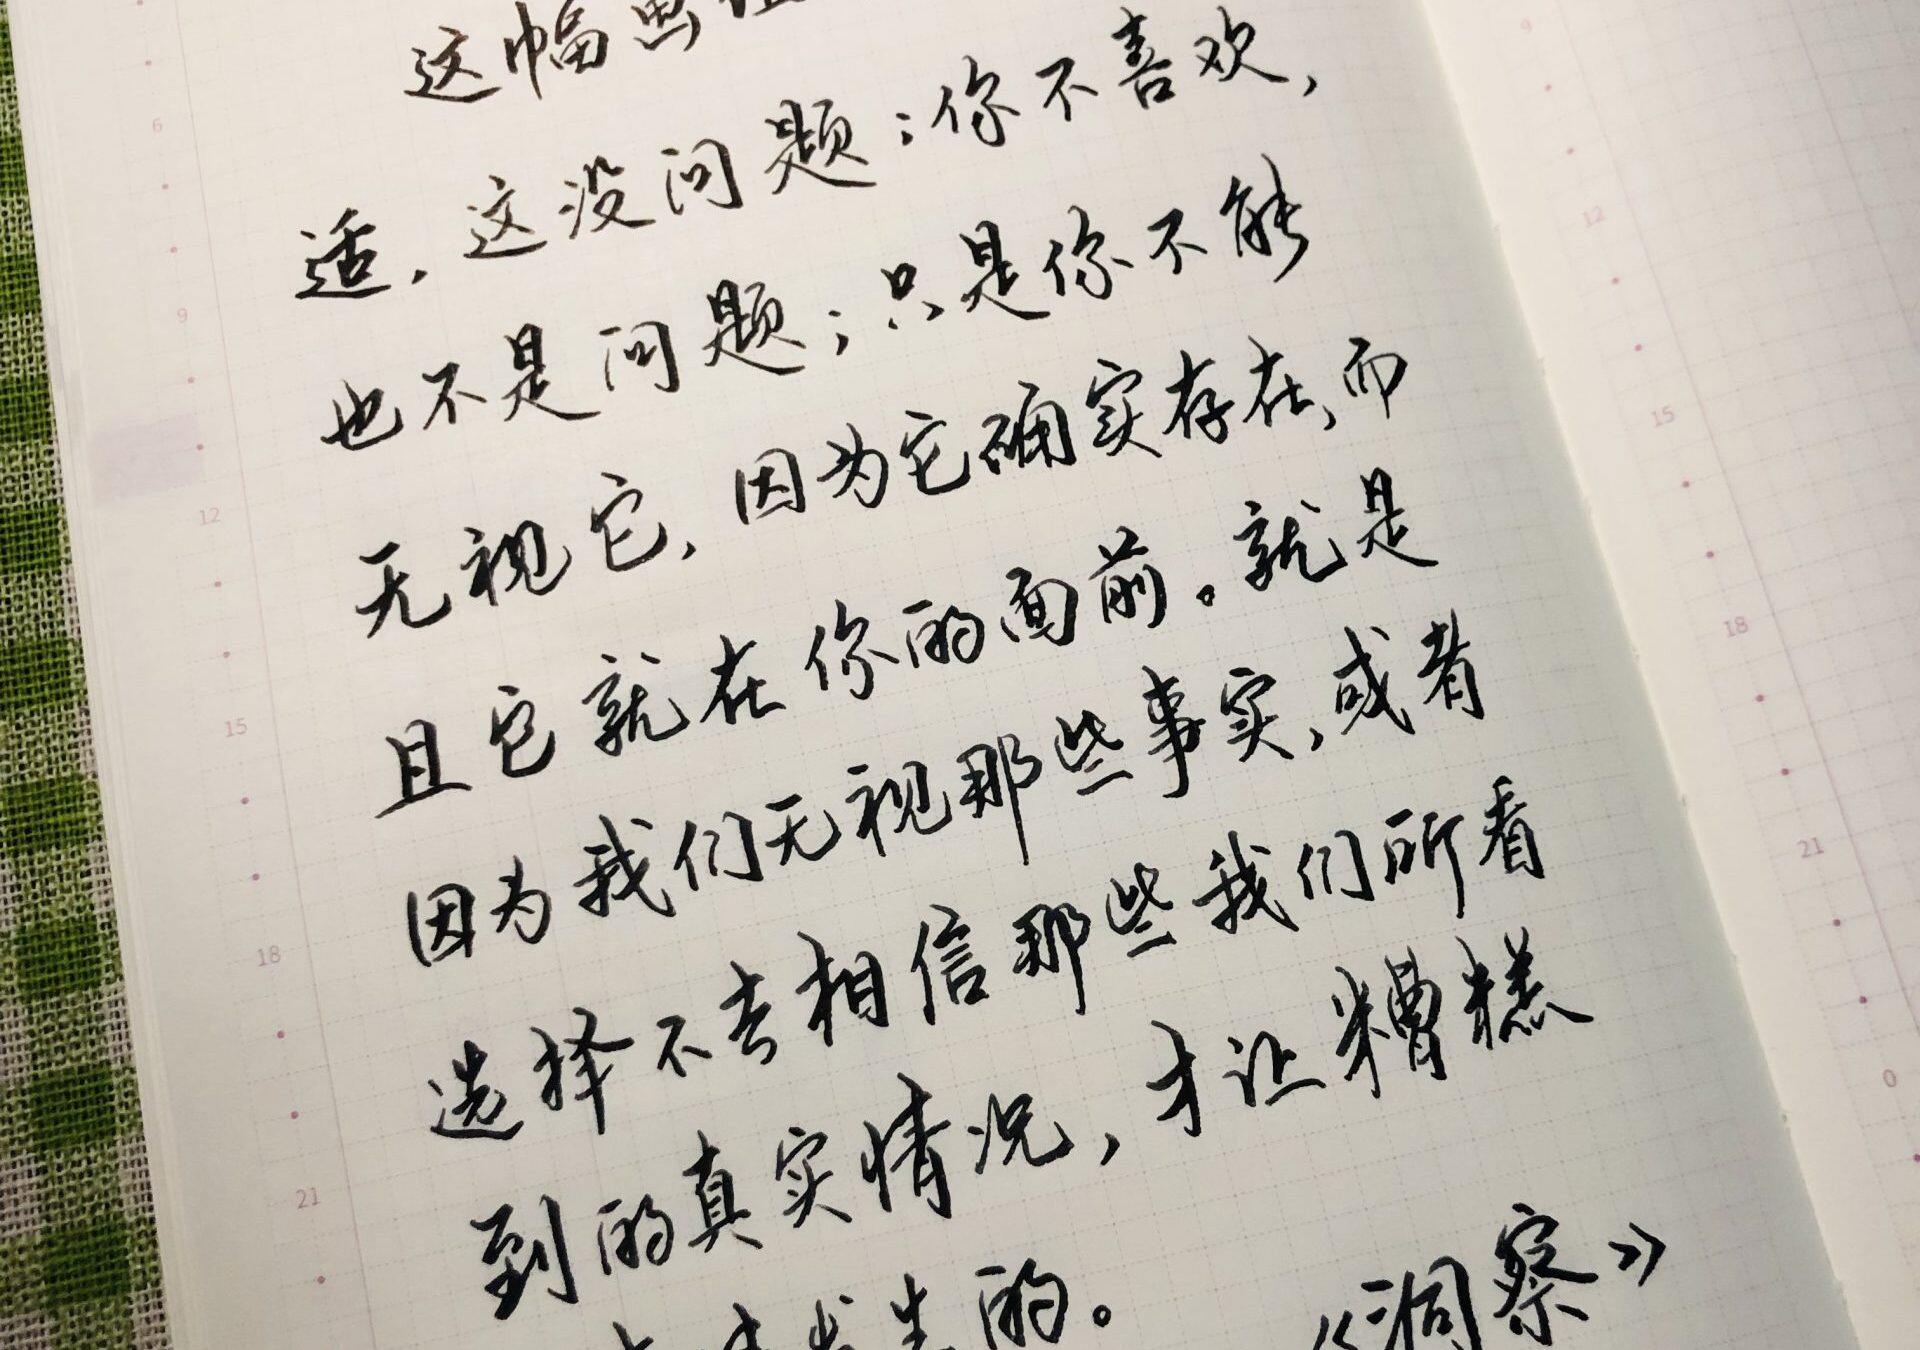 这幅画让
适，这没问题；你不喜欢，
也不是问题；只是你不能
无视它，因为它确实存在，而
且它就在你的面前。就是
因为我们无视那些事实，或者
选择不去相信那些我们所看
到的真实情况，才让糟糕
发生的。
《洞察》
6
9
12
15
18
21
9
12
15
18
21
0